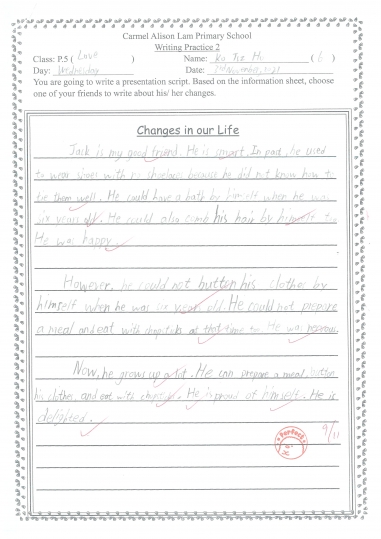 Carmel Alison Lam Primary School
Writing Practice 2
Class: P.5 ( Love ) Name: Ko Tsz Hi ( )
Day: Wednesday Date: November,
You are going to write a presentation script. Based on the information sheet, choose
one of your friends to write about his/ her changes.
Changes in our Life
Jack is my good friend. He is smart. In past, he used
to wear shoes with no shoelaces because he did not know how to
tie them well. He could have a bath by himself when he was
six years old. He could also comb his hair by himself too.
He was happy.
However, he could not button his clothes by
himself when he was six years old. He could not prepare
a meal and eat with chopsticks at that time too. He was nervous.
Now, he grows up a lot. He can prepare a meal, button
his clothes, and eat with chopsticks. He is proud of himself. He is
delighted.
Perfect
9/11